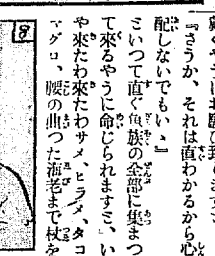 『さうか、それは直わかるから心
配しないでもいゝ』
といつて直ぐ魚族の全部に集まつ
て來るやうに命じられますと、い
や來たわ來たわサメ、ヒラメ、タコ
マグロ、腰の曲つた海老まで杖を
8